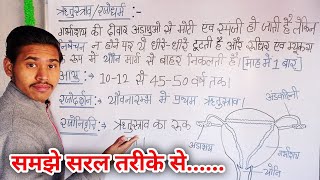 ऋतुस्त्राव/रजोधर्म :-
गर्भाशय की दीवार अंडाणुओं से मोटी एवं स्पंजी हो जाती है लेकिन
निषेचन न होने पर ये धीरे-धीरे टूटती है और रुधिर एवं म्यूकस
के रूप में योनि मार्ग से बाहर निकलती है। [माह में 1 बार]
आयु :- 10-12 से 45-50 वर्ष तक।
रजोदर्शन :- यौवनारम्भ में प्रथम ऋतुस्त्राव।
रजोनिवृत्ति :- ऋतुस्त्राव का रुक
अंडवाहिनी
अंडाशय
गर्भाशय
योनि
समझे सरल तरीके से......